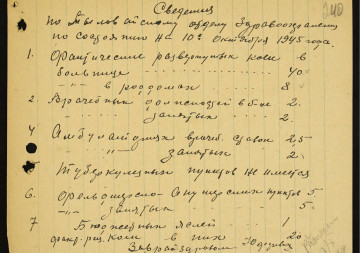 Сведения
по Тыловайскому отделу Здравоохранения
по состоянию на 10е Октября 1945 года
1. Фактические развернутых коек в
больнице 40
" в роддомах 8
2. Врачебных должностей в б-це 2
занятых 2.
4 Амбулаторных врачеб. ставок 2,5
-"- занятых 2.
5 Туберкулезных пунктов не имеется
6. Фельдшерско-Акушерских пунктов 5
-"- занятых 5
7 Бюджетных яслей 1
коек в них 20
Зав.райздравом
240